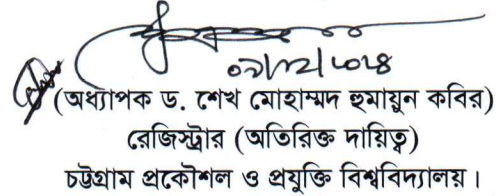 ০৯/১২/২০২৪
(অধ্যাপক ড. শেখ মোহাম্মদ হুমায়ুন কবির)
রেজিস্ট্রার (অতিরিক্ত দায়িত্ব)
চট্টগ্রাম প্রকৌশল ও প্রযুক্তি বিশ্ববিদ্যালয়।